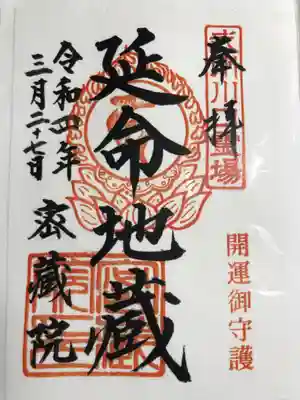 奉拝
開運御守護
延命地蔵
令和四年
三月二十七日
密蔵院